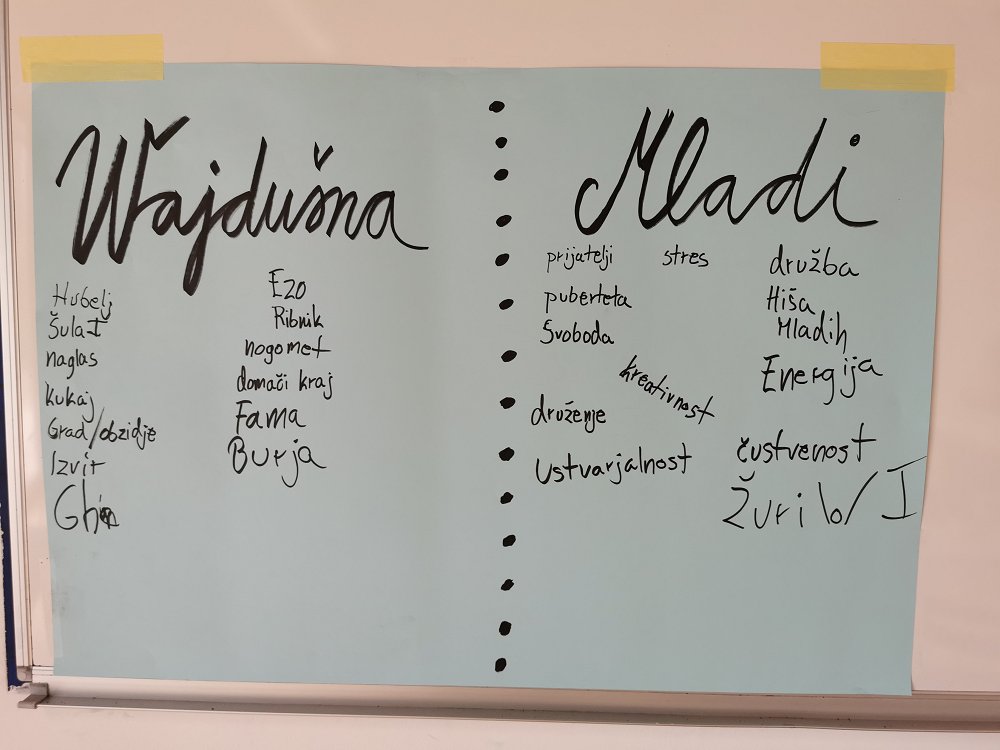 Wajdušna
Hubelj
Šula I
naglas
kukaj
Grad/obzidje
Izvir
Ezo
Ribnik
nogomet
domači kraj
Fama
Burja
Mladi
prijatelji
puberteta
Svoboda
stres
kreativnost
druženje
Ustvarjalnost
družba
Hiša
Mladih
Energija
čustvenost